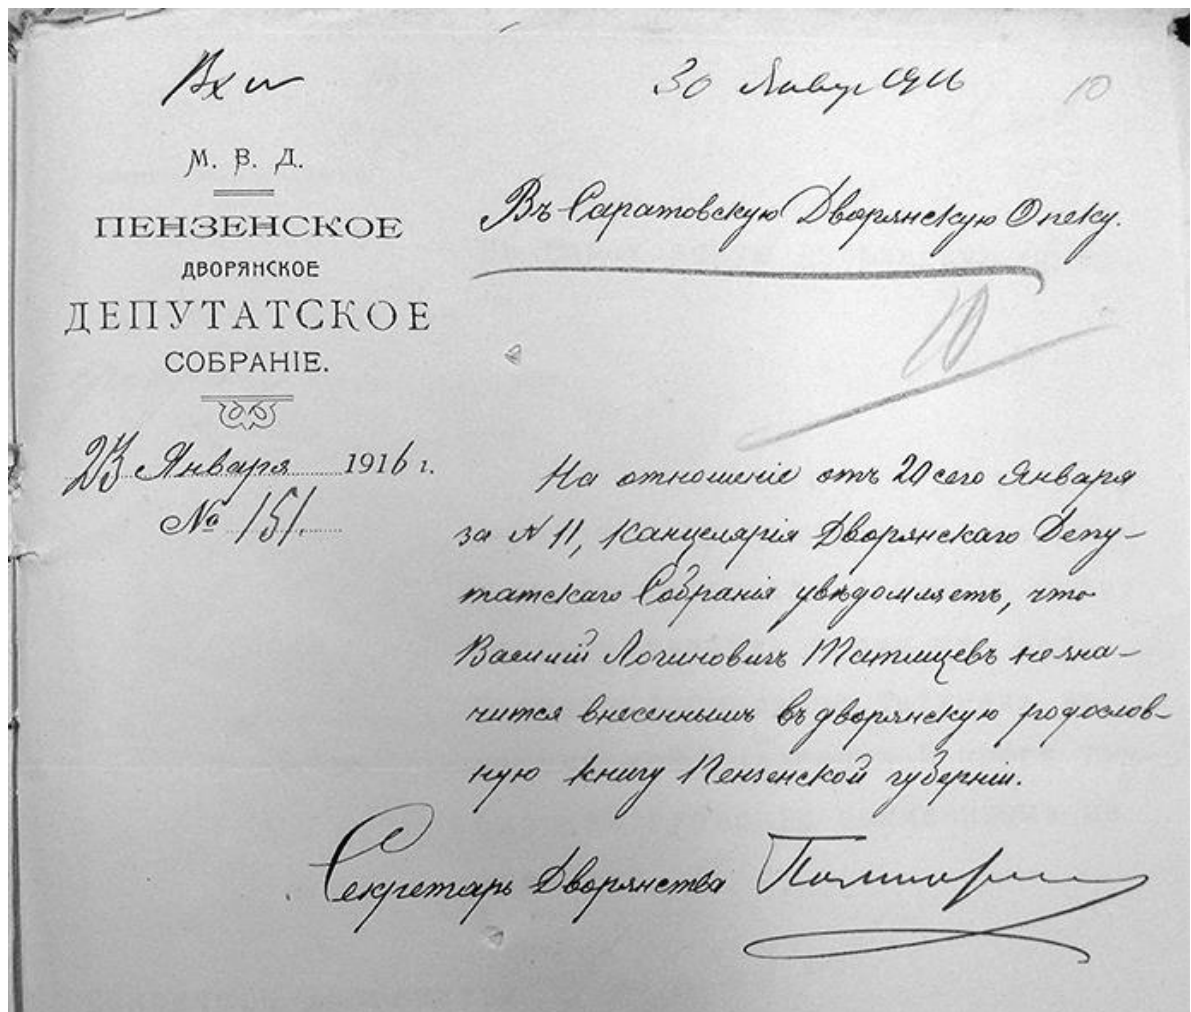 Вх №
30 Январ 1916
10
М. В. Д.
ПЕНЗЕНСКОЕ
ДВОРЯНСКОЕ
ДЕПУТАТСКОЕ
СОБРАНІЕ.
23 Января 1916 г.
№ 151.
Въ Саратовскую Дворянскую Опеку.
10
На отношеніе отъ 20 сего Января
за № 11, Канцелярія Дворянскаго Депу-
татскаго Собранія увѣдомляетъ, что
Василій Логиновичъ Татищевъ не зна-
чится внесеннымъ въ дворянскую родослов-
ную книгу Пензенской губерніи.
Секретарь Дворянства